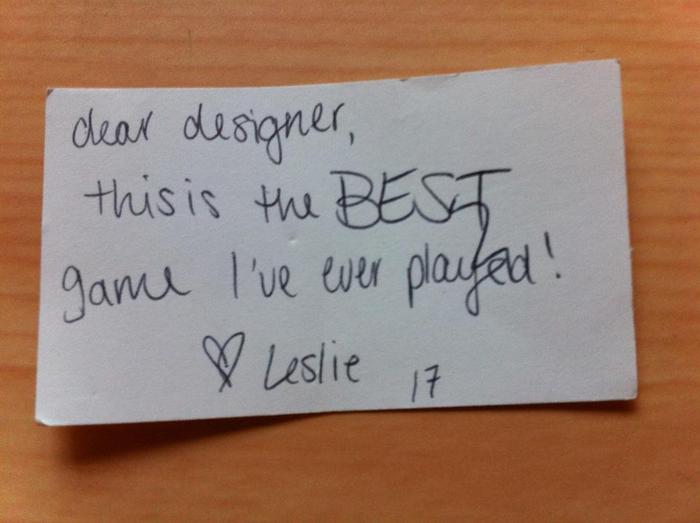 dear designer,
this is the BEST
game I've ever played!
♡ Leslie 17